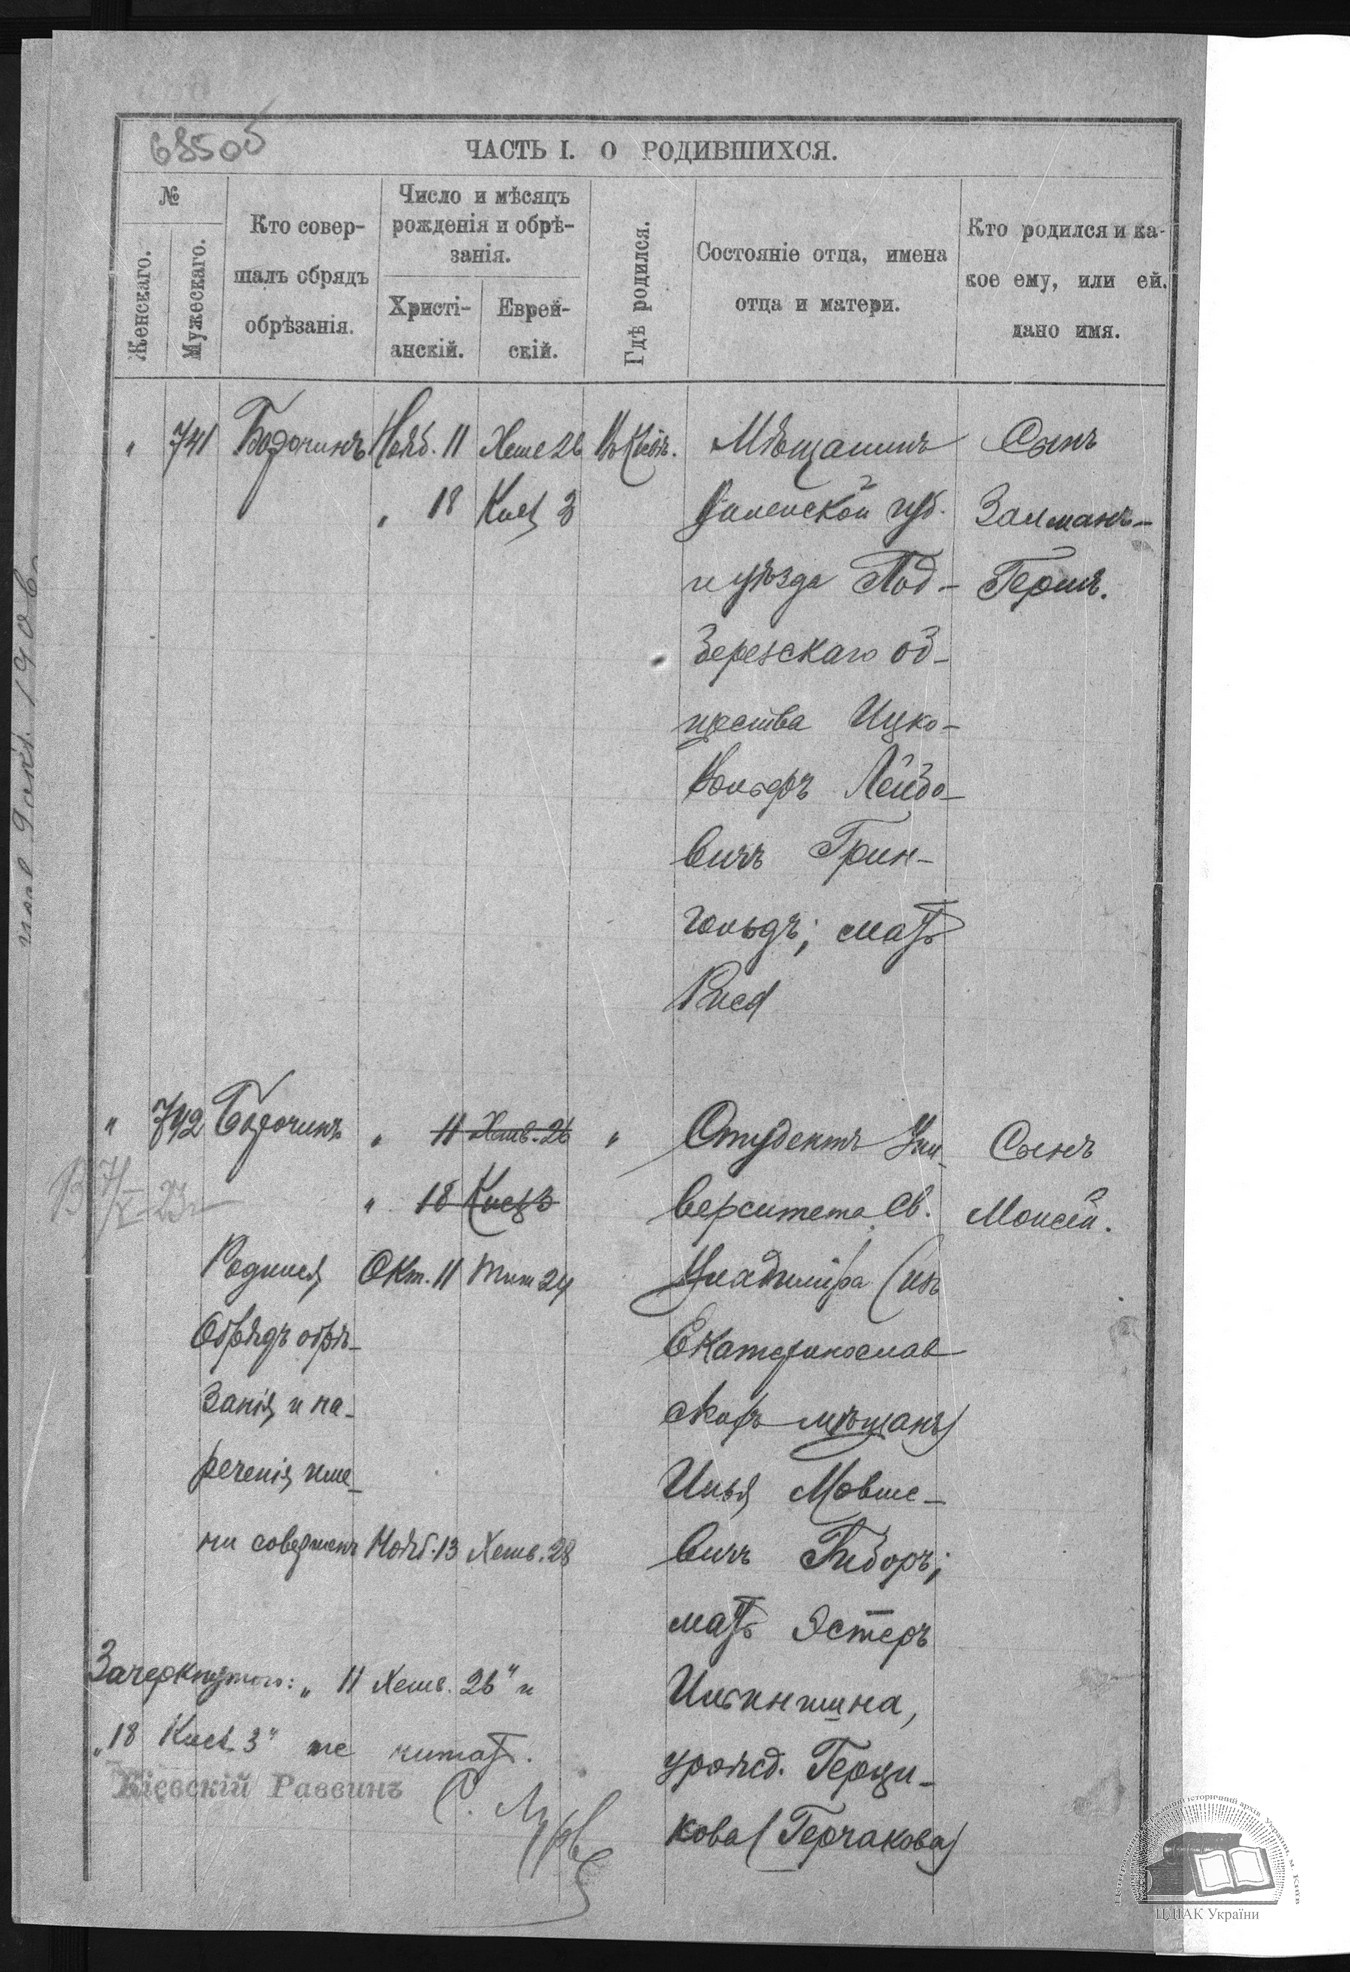 6850об
ЧАСТЬ I. О РОДИВШИХСЯ.
№
Женскаго.
Мужескаго.
Кто совер-
шалъ обрядъ
обрѣзанія.
Число и мѣсяцъ
рожденія и обрѣ-
занія.
Христі-
анскій.
Еврей-
скій.
Гдѣ родился.
Состояніе отца, имена
отца и матери.
Кто родился и ка-
кое ему, или ей,
дано имя.
" 741 Бодочинъ Нояб. 11 Хеше 26 Въ Кіевѣ.
" 18 Кисл 3
Мѣщанинъ
Виленской губ.
и уѣзда Под-
березскаго об-
щества Ицко-
Вольфъ Лейбо-
вичъ Грин-
гольдъ; мать
Рися
Сынъ
Залманъ-
Гершъ.
" 742 Бодочинъ " 11 Хешв. 26 "
" 18 Кисл 3
Родился Окт. 11 Тиш 24
Обрядъ обрѣ-
занія и на-
реченія име-
ни совершенъ Нояб. 13 Хешв. 28
Студентъ Уни-
верситета Св.
Владиміра (изъ
Екатеринослав
скихъ мѣщанъ)
Илья Мовше-
вичъ Гиборъ;
мать Эстеръ
Ильинишна,
урожд. Герци-
кова (Герчакова)
Сынъ
Моисей.
Зачеркнутого: " 11 Хешв. 26" и
"18 Кисл 3" не читать.
Кіевскій Раввинъ
ЦДІАК України